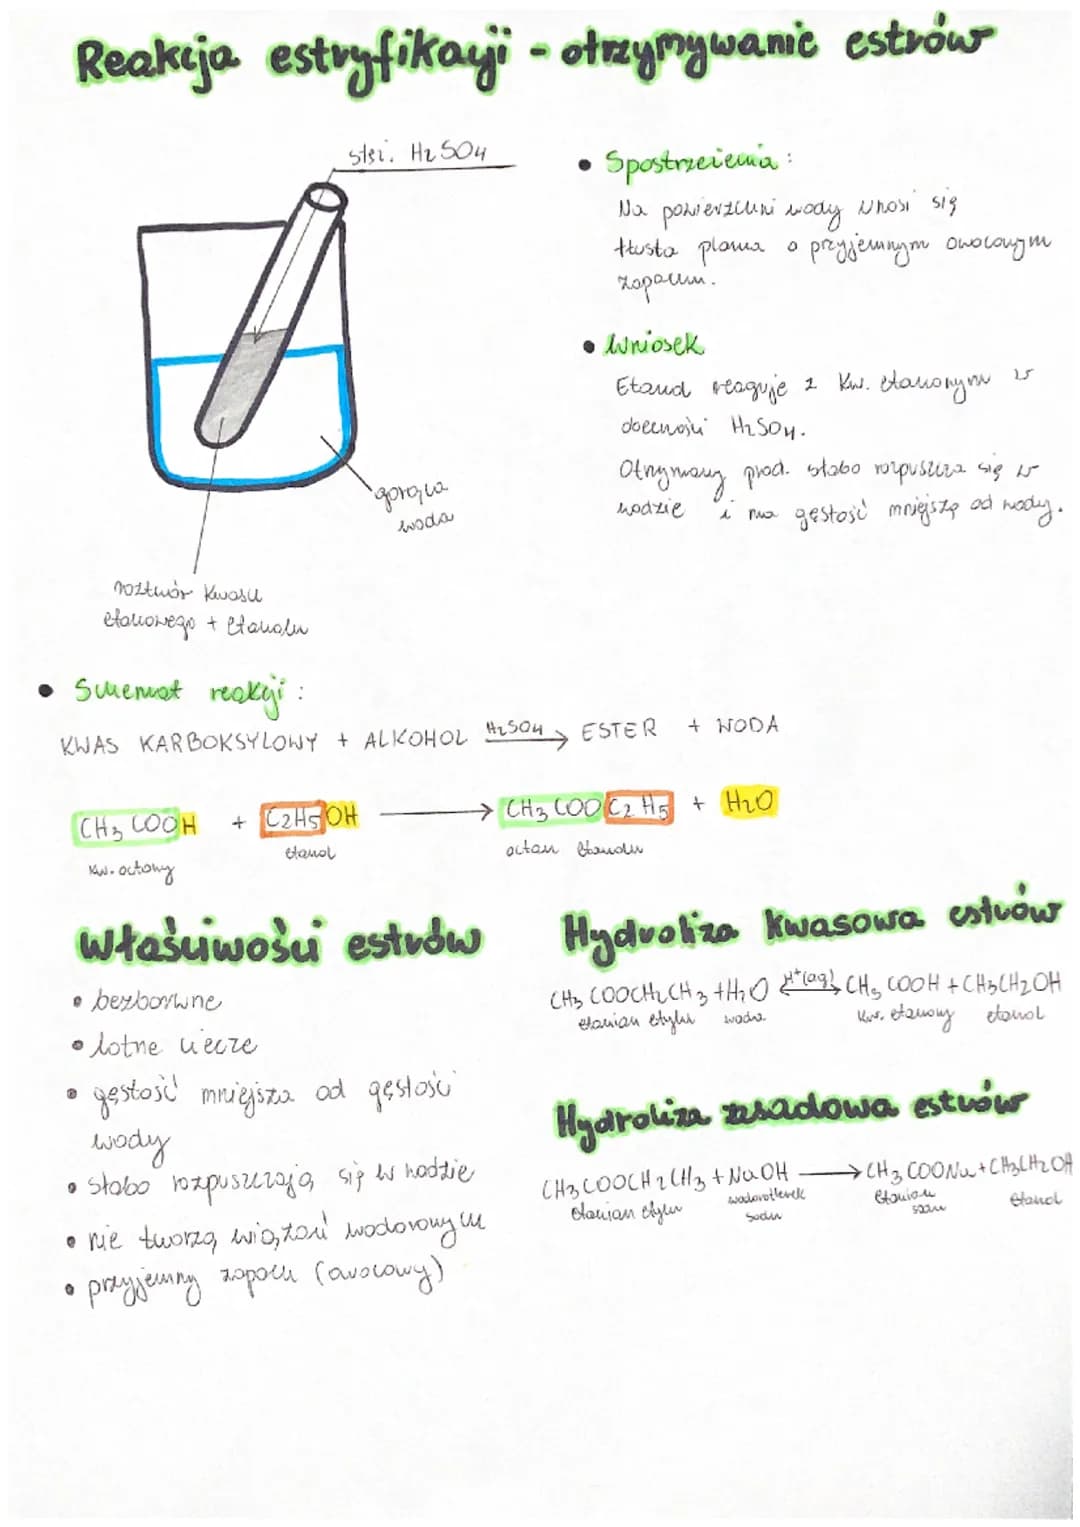 Reakcja estryfikacji - otrzymywanie estrów
stęż. H2SO4
gorąca
woda
roztwór kwasu
etanowego + etanolu
• Spostrzeżenia:
Na powierzchni wody unosi się
tłusta plama o przyjemnym owocowym
zapachu.
• Wniosek
Etanol reaguje z kw. etanonym w
obecności H2SO4.
Otrzymany prod. słabo rozpuszcza się w
wodzie i ma gęstość mniejszą od wody.
• Schemat reakcji:
KWAS KARBOKSYLOWY + ALKOHOL H2SO4 → ESTER + WODA
CH3COOH + C2H5OH → CH3COOC2H5 + H2O
kw. octowy etanol octan etanolu
Właściwości estrów
• bezbarwne
• lotne ciecze
• gęstość mniejsza od gęstości
wody
• słabo rozpuszczają się w wodzie
• nie tworzą wiązań wodorowych
• przyjemny zapach (owocowy)
Hydroliza kwasowa estrów
CH3COOCH2CH3 + H2O H+(aq) ⇄ CH3COOH + CH3CH2OH
etanian etylu woda kw. etanowy etanol
Hydroliza zasadowa estrów
CH3COOCH2CH3 + NaOH → CH3COONa + CH3CH2OH
etanian etylu wodorotlenek etanian etanol
sodu sodu